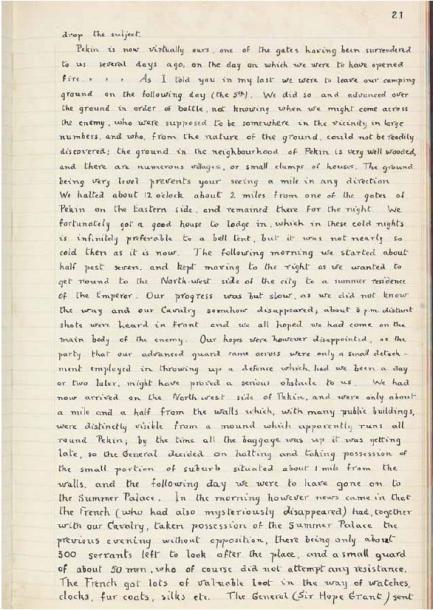 21
drop the subject.
Pekin is now virtually ours, one of the gates having been surrendered
to us several days ago, on the day on which we were to have opened
fire. . . . As I told you in my last we were to leave our camping
ground on the following day (the 5th). We did so and advanced over
the ground in order of battle, not knowing when we might come across
the enemy, who were supposed to be somewhere in the vicinity in large
numbers, and who, from the nature of the ground, could not be readily
discovered; the ground in the neighbourhood of Pekin is very well wooded,
and there are numerous villages, or small clumps of houses. The ground
being very level prevents your seeing a mile in any direction
We halted about 12 o'clock about 2 miles from one of the gates of
Pekin on the Eastern side, and remained there for the night. We
fortunately got a good house to lodge in, which in these cold nights
is infinitely preferable to a bell tent, but it was not nearly so
cold then as it is now. The following morning we started about
half past seven, and kept moving to the right as we wanted to
get round to the North-west side of the city to a summer residence
of the Emperor. Our progress was but slow, as we did not know
the way and our Cavalry somehow disappeared; about 3 p.m. distant
shots were heard in front and we all hoped we had come on the
main body of the enemy. Our hopes were however disappointed, as the
party that our advanced guard came across were only a small detach-
ment employed in throwing up a defence which, had we been a day
or two later, might have proved a serious obstacle to us. We had
now arrived on the North west side of Pekin, and were only about
a mile and a half from the walls which, with many public buildings,
were distinctly visible from a mound which apparently runs all
round Pekin; by the time all the baggage was up it was getting
late, so the General decided on halting and taking possession of
the small portion of suburb situated about 1 mile from the
walls, and the following day we were to have gone on to
the Summer Palace. In the morning however news came in that
the French (who had also mysteriously disappeared) had, together
with our Cavalry, taken possession of the Summer Palace the
previous evening without opposition, there being only about
300 servants left to look after the place, and a small guard
of about 50 men, who of course did not attempt any resistance.
The French got lots of valuable loot in the way of watches,
clocks, fur coats, silks etc. The General (Sir Hope Grant) sent